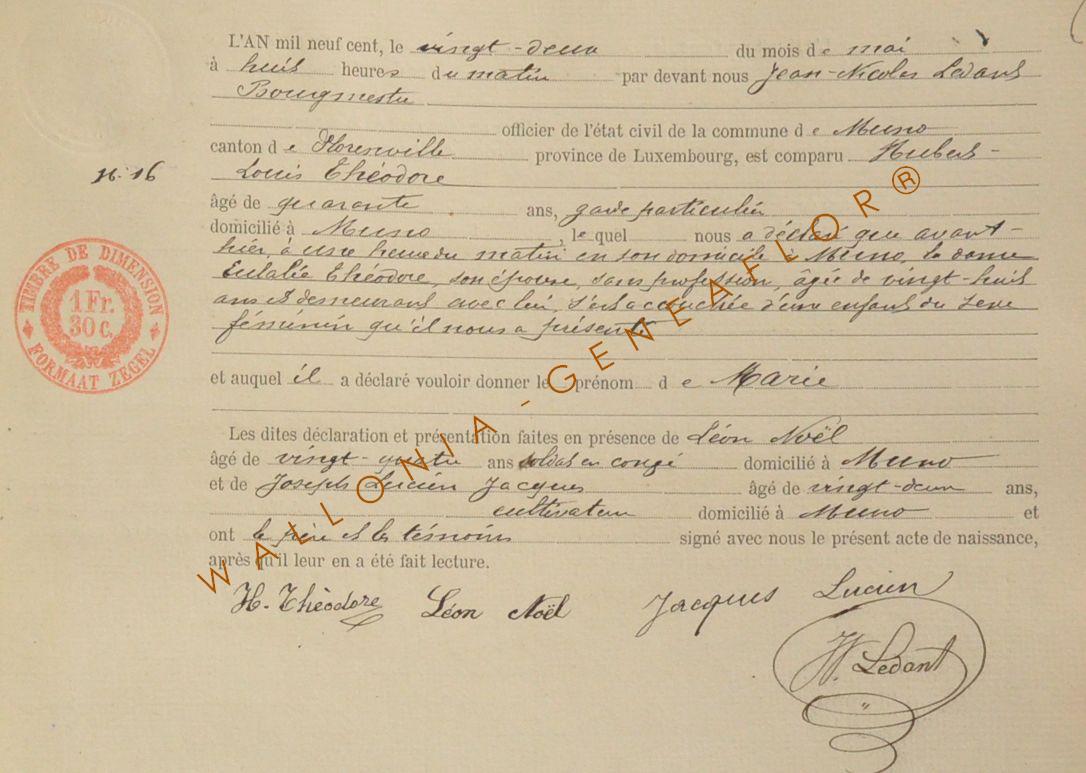 L'AN mil neuf cent, le vingt-deux du mois de mai
à huit heures du matin par devant nous Jean-Nicolas Ledant
Bourgmestre
officier de l'état civil de la commune de Muno
canton de Florenville province de Luxembourg, est comparu Hubert-
N° 16
Louis Théodore
âgé de quarante ans, garde particulier
domicilié à Muno, lequel nous a déclaré que avant-
hier, à une heure du matin en son domicile à Muno, la dame
Eulalie Théodore, son épouse, sans profession, âgée de vingt-huit
ans et demeurant avec lui, s'est accouchée d'un enfant du sexe
féminin qu'il nous a présenté
et auquel il a déclaré vouloir donner le prénom de Marie
Les dites déclaration et présentation faites en présence de Léon Noël
âgé de vingt-quatre ans soldat en congé domicilié à Muno
et de Joseph Lucien Jacques âgé de vingt-deux ans,
cultivateur domicilié à Muno et
ont le père et les témoins signé avec nous le présent acte de naissance,
après qu'il leur en a été fait lecture.
H. Théodore Léon Noël Jacques Lucien
Ledant
TIMBRE DE DIMENSION
1 Fr.
30 C.
FORMAAT ZEGEL
WALLONIA-GENEAFLOR®